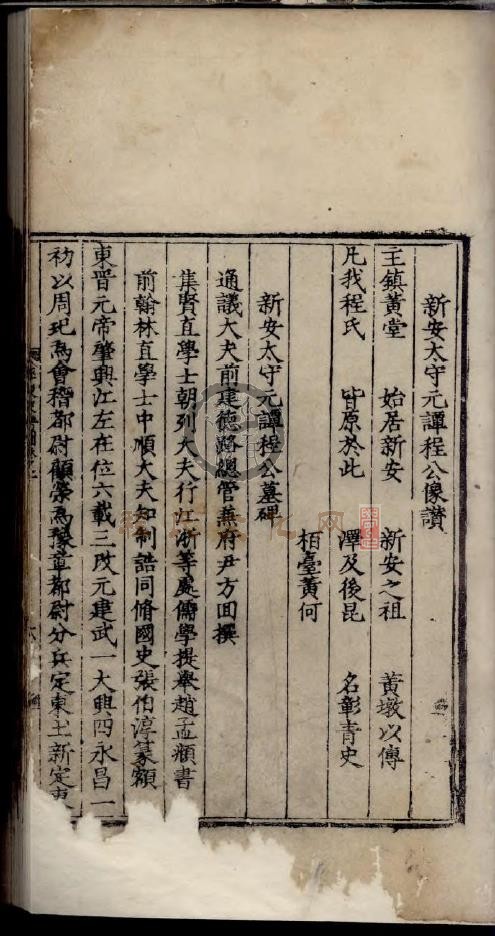 新安太守元譚程公像讃
主鎮黃堂 始居新安 新安之祖 黃墩以傳
凡我程氏 皆原於此 澤及後昆 名彰青史
栢臺黃何
新安太守元譚程公墓碑
通議大夫前建德路總管兼府尹方回撰
集賢直學士朝列大夫行江浙等處儒學提舉趙孟頫書
前翰林直學士中順大夫知制誥同脩國史張伯淳篆額
東晋元帝肇興江左在位六載三改元建武一大興四永昌一
初以周玘為會稽都尉顧榮為豫章都尉分兵定東土新定